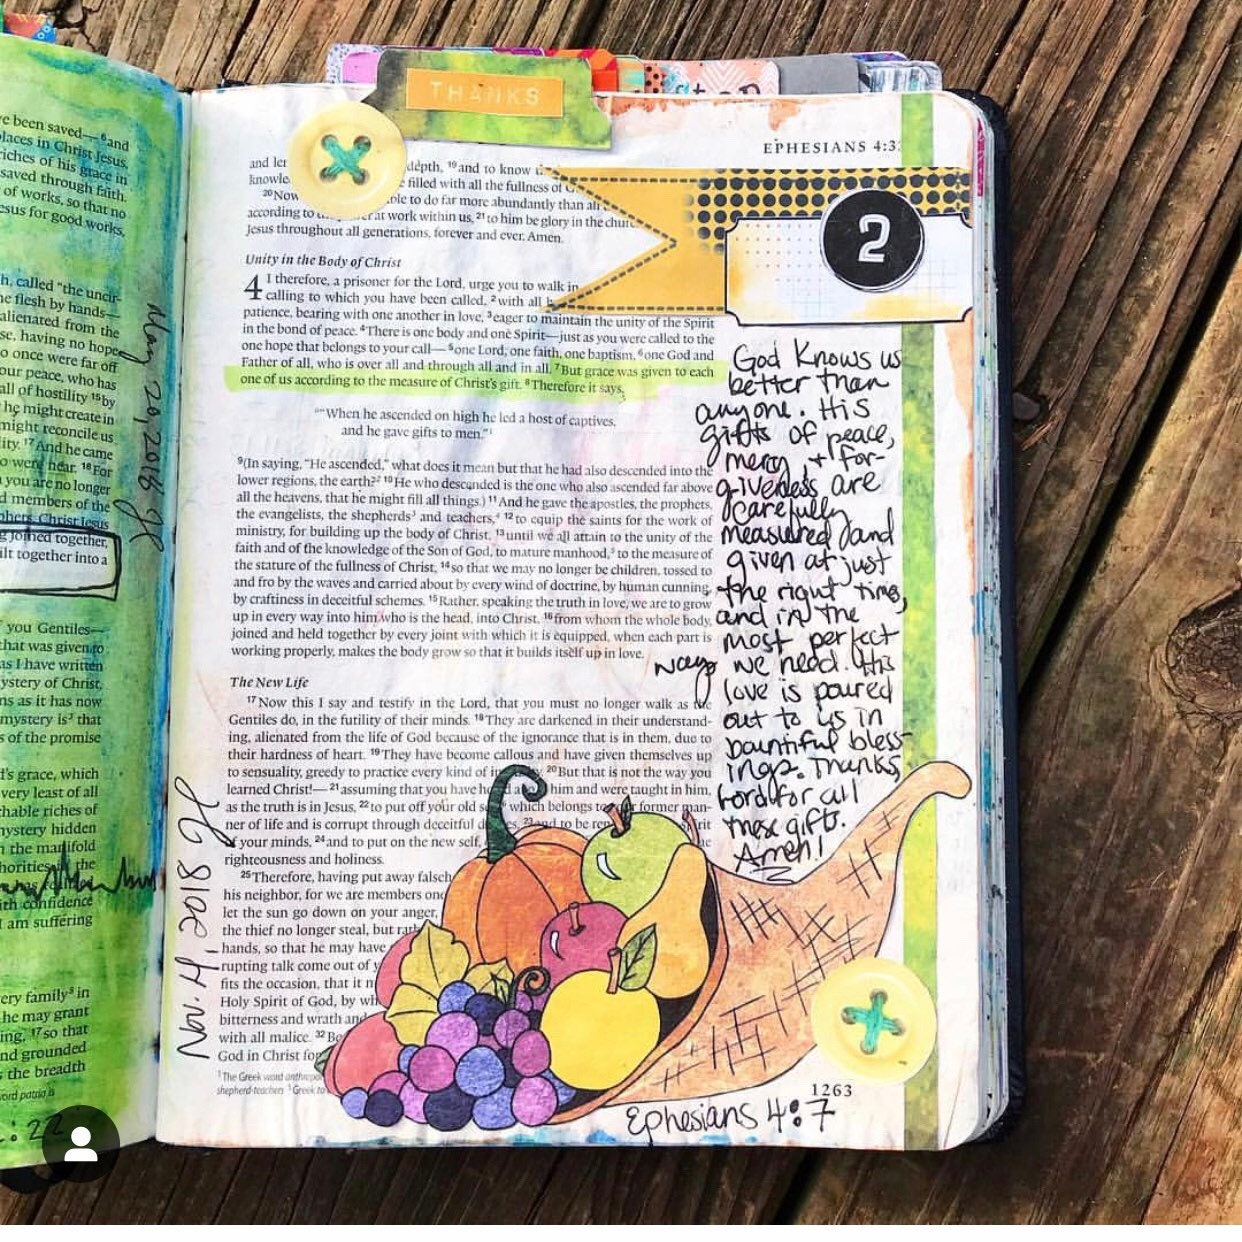 THANKS
EPHESIANS 4:3
2
ve been saved—⁶and
laces in Christ Jesus,
riches of his grace in
saved through faith.
of works, so that no
esus for good works,
h, called "the uncir-
he flesh by hands—
alienated from the
se, having no hope
o once were far off
our peace, who has
all of hostility ¹⁵by
he might create in
might reconcile us
lity. ¹⁷And he came
o were near. ¹⁸For
you are no longer
d members of the
phets, Christ Jesus
g joined together,
ilt together into a
you Gentiles—
that was given to
as I have written
ystery of Christ,
ns as it has now
mystery is³ that
s of the promise
d's grace, which
very least of all
chable riches of
mystery hidden
h the manifold
horities in the
ith confidence
I am suffering
ery family⁵ in
he may grant
ing, ¹⁷so that
nd grounded
s the breadth
ord patria is
: 22
May 20, 2018
Nov. 4, 2018
depth, ¹⁹and to know
knowle filled with all the fullness of
²⁰Now ble to do far more abundantly than all
according to at work within us, ²¹to him be glory in the chur
Jesus throughout all generations, forever and ever. Amen.
Unity in the Body of Christ
4 I therefore, a prisoner for the Lord, urge you to walk in
calling to which you have been called, ²with all
patience, bearing with one another in love, ³eager to maintain the unity of the Spirit
in the bond of peace. ⁴There is one body and one Spirit—just as you were called to the
one hope that belongs to your call—⁵one Lord, one faith, one baptism, ⁶one God and
Father of all, who is over all and through all and in all. ⁷But grace was given to each
one of us according to the measure of Christ's gift. ⁸Therefore it says,
"When he ascended on high he led a host of captives,
and he gave gifts to men."¹
⁹(In saying, "He ascended," what does it mean but that he had also descended into the
lower regions, the earth?² ¹⁰He who descended is the one who also ascended far above
all the heavens, that he might fill all things.) ¹¹And he gave the apostles, the prophets,
the evangelists, the shepherds³ and teachers,⁴ ¹²to equip the saints for the work of
ministry, for building up the body of Christ, ¹³until we all attain to the unity of the
faith and of the knowledge of the Son of God, to mature manhood,⁵ to the measure of
the stature of the fullness of Christ, ¹⁴so that we may no longer be children, tossed to
and fro by the waves and carried about by every wind of doctrine, by human cunning,
by craftiness in deceitful schemes. ¹⁵Rather, speaking the truth in love, we are to grow
up in every way into him who is the head, into Christ, ¹⁶from whom the whole body,
joined and held together by every joint with which it is equipped, when each part is
working properly, makes the body grow so that it builds itself up in love.
The New Life
¹⁷Now this I say and testify in the Lord, that you must no longer walk as the
Gentiles do, in the futility of their minds. ¹⁸They are darkened in their understand-
ing, alienated from the life of God because of the ignorance that is in them, due to
their hardness of heart. ¹⁹They have become callous and have given themselves up
to sensuality, greedy to practice every kind of ²⁰But that is not the way you
learned Christ!— ²¹assuming that you have him and were taught in him,
as the truth is in Jesus, ²²to put off your old which belongs to former man-
ner of life and is corrupt through deceitful ²³and to be ren
of your minds, ²⁴and to put on the new self,
righteousness and holiness.
²⁵Therefore, having put away falseh
his neighbor, for we are members one
let the sun go down on your anger,
the thief no longer steal, but rath
hands, so that he may have
rupting talk come out of y
fits the occasion, that it m
Holy Spirit of God, by wh
bitterness and wrath and
with all malice. ³²Be
God in Christ for
¹ The Greek word anthropoi
shepherd-teachers ⁵ Greek to
God knows us
better than
anyone. His
gifts of peace,
mercy, + for-
giveness are
carefully
measured and
given at just
the right time,
and in the
most perfect
ways we need. His
love is poured
out to us in
bountiful bless-
ings. Thanks,
Lord for all
these gifts.
Amen!
1263
Ephesians 4:7